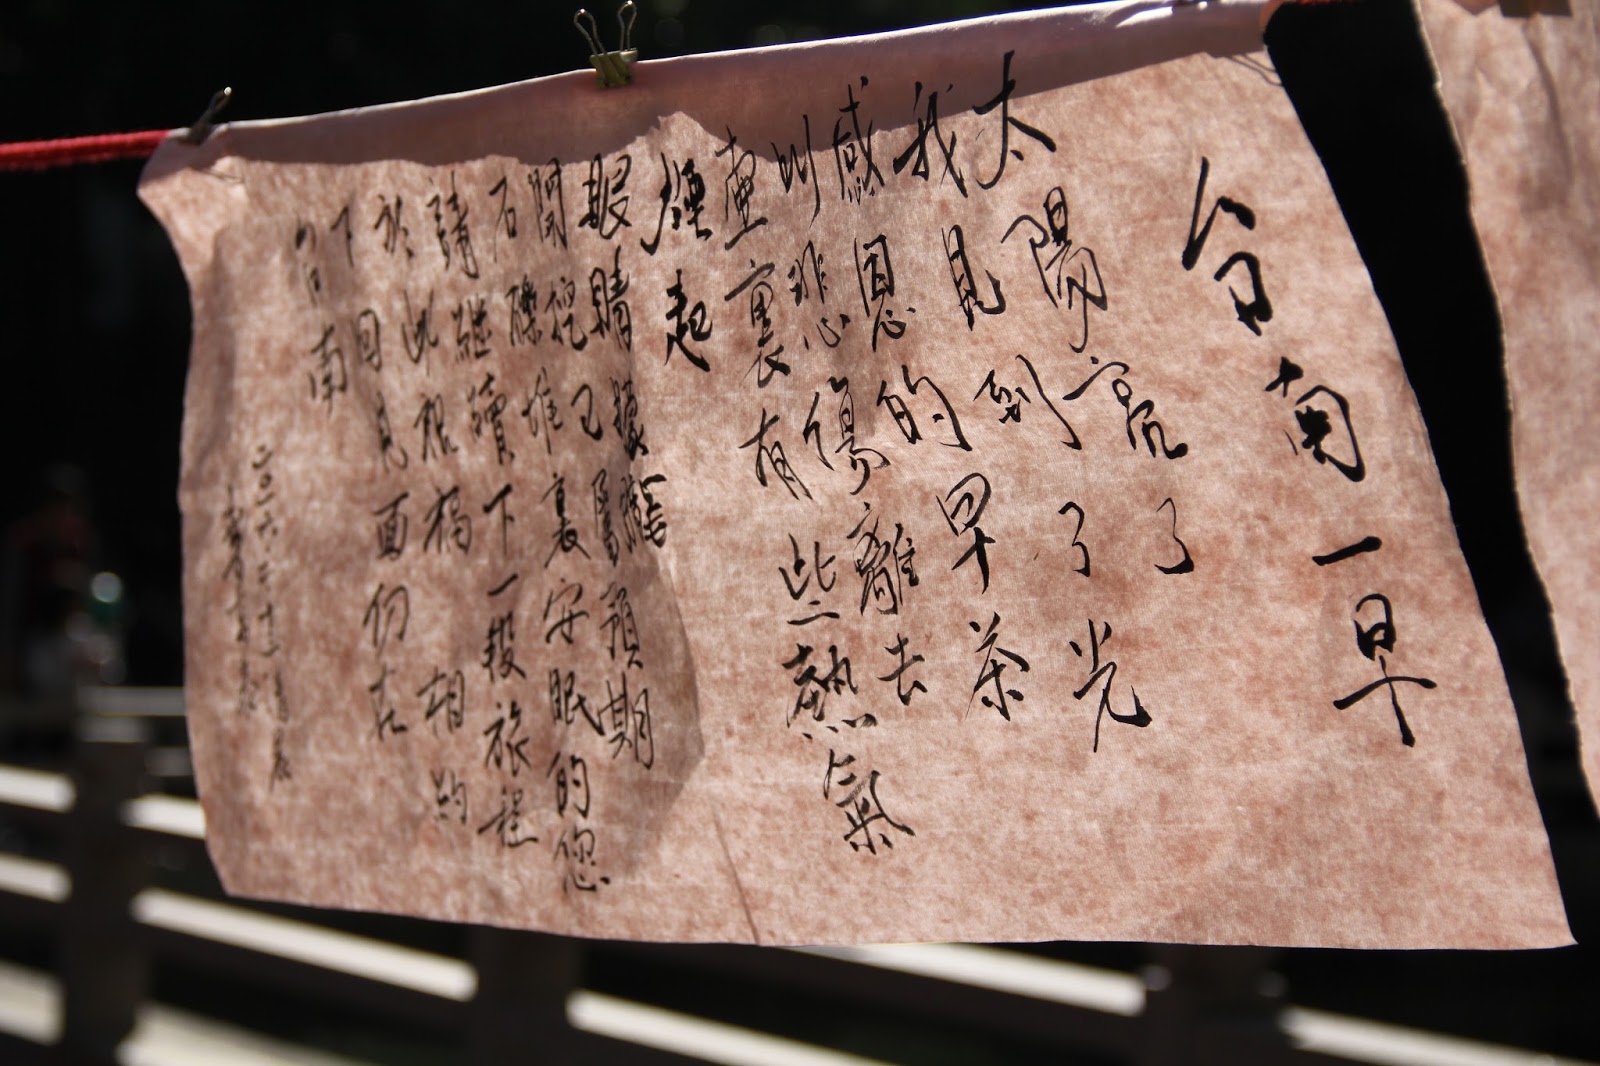 台南一早
太陽亮了
我見到了光
感恩的早茶
以悲傷離去
壺裏有些熱氣
煙起
眼睛矇矓
開挖已屬預期
石礫堆裏安眠的您
請繼續下一段旅程
於此祝福 相約
下回見面仍在
台南
二〇一六